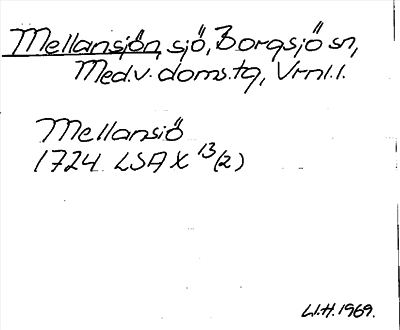 Mellansjön, sjö, Borgsjö sn,
Med.v. doms.tg, Vrnl.l.
Mellansiö
1724 LSA X 13(2)
W.H. 1969.